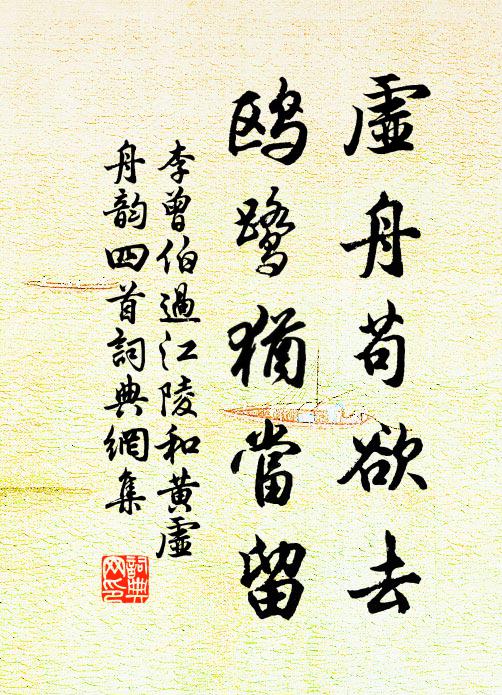 虛舟苟欲去
鷗鷺猶當留
李曾伯過江陵和黃虛
舟韵四首詞典網集
詞典
网印